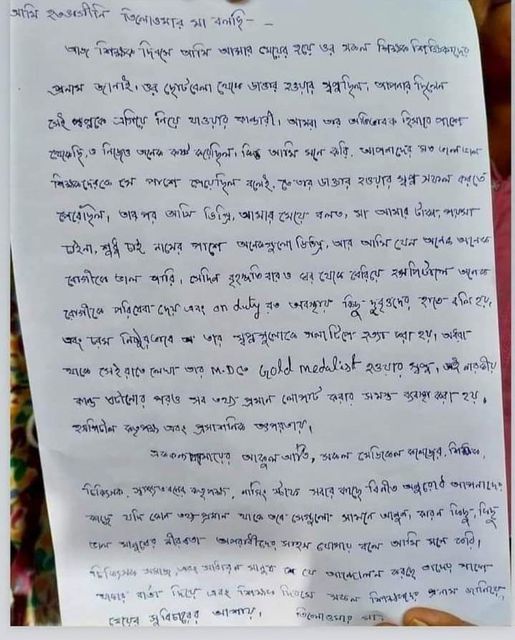 আমি হতভাগীনি তিলোত্তমার মা বলছি - -
আজ শিক্ষক দিবসে আমি আমার মেয়ের হয়ে ওর সকল শিক্ষক শিক্ষিকাদের
প্রনাম জানাই, ওর ছোটবেলা থেকে ডাক্তার হওয়ার স্বপ্ন ছিল, আপনারা ছিলেন
সেই স্বপ্নকে এগিয়ে নিয়ে যাওয়ার কান্ডারী। আমরা তার অভিভাবক হিসাবে পাশে
থেকেছি, ও নিজেও অনেক কষ্ট করেছিল, কিন্তু আমি মনে করি, আপনাদের মত ভাল ভাল
শিক্ষকদেরকে সে পাশে পেয়েছিল বলেই, তার ডাক্তার হওয়ার স্বপ্ন সফল করতে
পেরেছিল, তারপর আমার মেয়ে বলত, মা আমার টাকা পয়সা
চাইনা, শুধু চাই নামের পাশে অনেকগুলো ডিগ্রি, আর আমি যেন অনেক অনেক
রোগীকে ভাল করি। সেদিন বৃহস্পতিবারও ঘর থেকে বেরিয়ে হসপিটালে অনেক
রোগীকে পরিষেবা দেয় এবং on duty রত অবস্থায় কিছু দুর্বৃত্তদের হাতে বলি হয়,
এবং চরম নিষ্ঠুরভাবে তার স্বপ্নগুলোকে গলাটিপে হত্যা করা হয়। অধরা
থাকে সেই রাতে লেখা তার M.D তে Gold medalist হওয়ার স্বপ্ন, এই নারকীয়
কান্ড ঘটানোর পরও সব তথ্য প্রমান লোপাট করার সমস্ত ব্যবস্থা করা হয়।
হসপিটাল কতৃপক্ষ এবং প্রশাসনিক তৎপরতায়।
মায়ের আকুল আর্তি, সকল মেডিকেল কলেজের, শিক্ষক,
চিকিৎসক, কতৃপক্ষ, নার্সিং স্টাফ সবার কাছে বিনীত অনুরোধ আপনাদের
কাছে যদি কোন তথ্য প্রমান থাকে তবে সেগুলো সামনে আনুন, কারন কিছু, কিছু
ভাল মানুষের নীরবতা অপরাধীদের সাহস যোগায় বলে আমি মনে করি।
চিকিৎসক সমাজ, এবং সাধারন মানুষ যে আন্দোলন করছে তাদের পাশে
থাকার বার্তা দিয়ে এবং শিক্ষক দিবসে সকল শিক্ষকদের প্রনাম জানিয়ে,
মেয়ের সুবিচারের আশায়। তিলোত্তমার মা